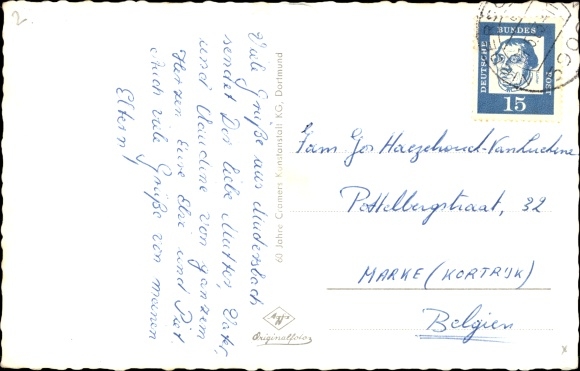 2
Viele Grüße aus Mudersbach
sendet Dir liebe Mutter, Vater,
und Claudine von ganzem
Herzen Eure Elsie und Piet.
Auch viele Grüße von meinen
Eltern
60 Jahre Cramers Kunstanstalt KG, Dortmund
Agfa
Originalfoto
DEUTSCHE BUNDESPOST
15
Fam Jos Haezebrouck-Vanluchene
Pottelbergstraat, 32
MARKE (KORTRIJK)
Belgien
x